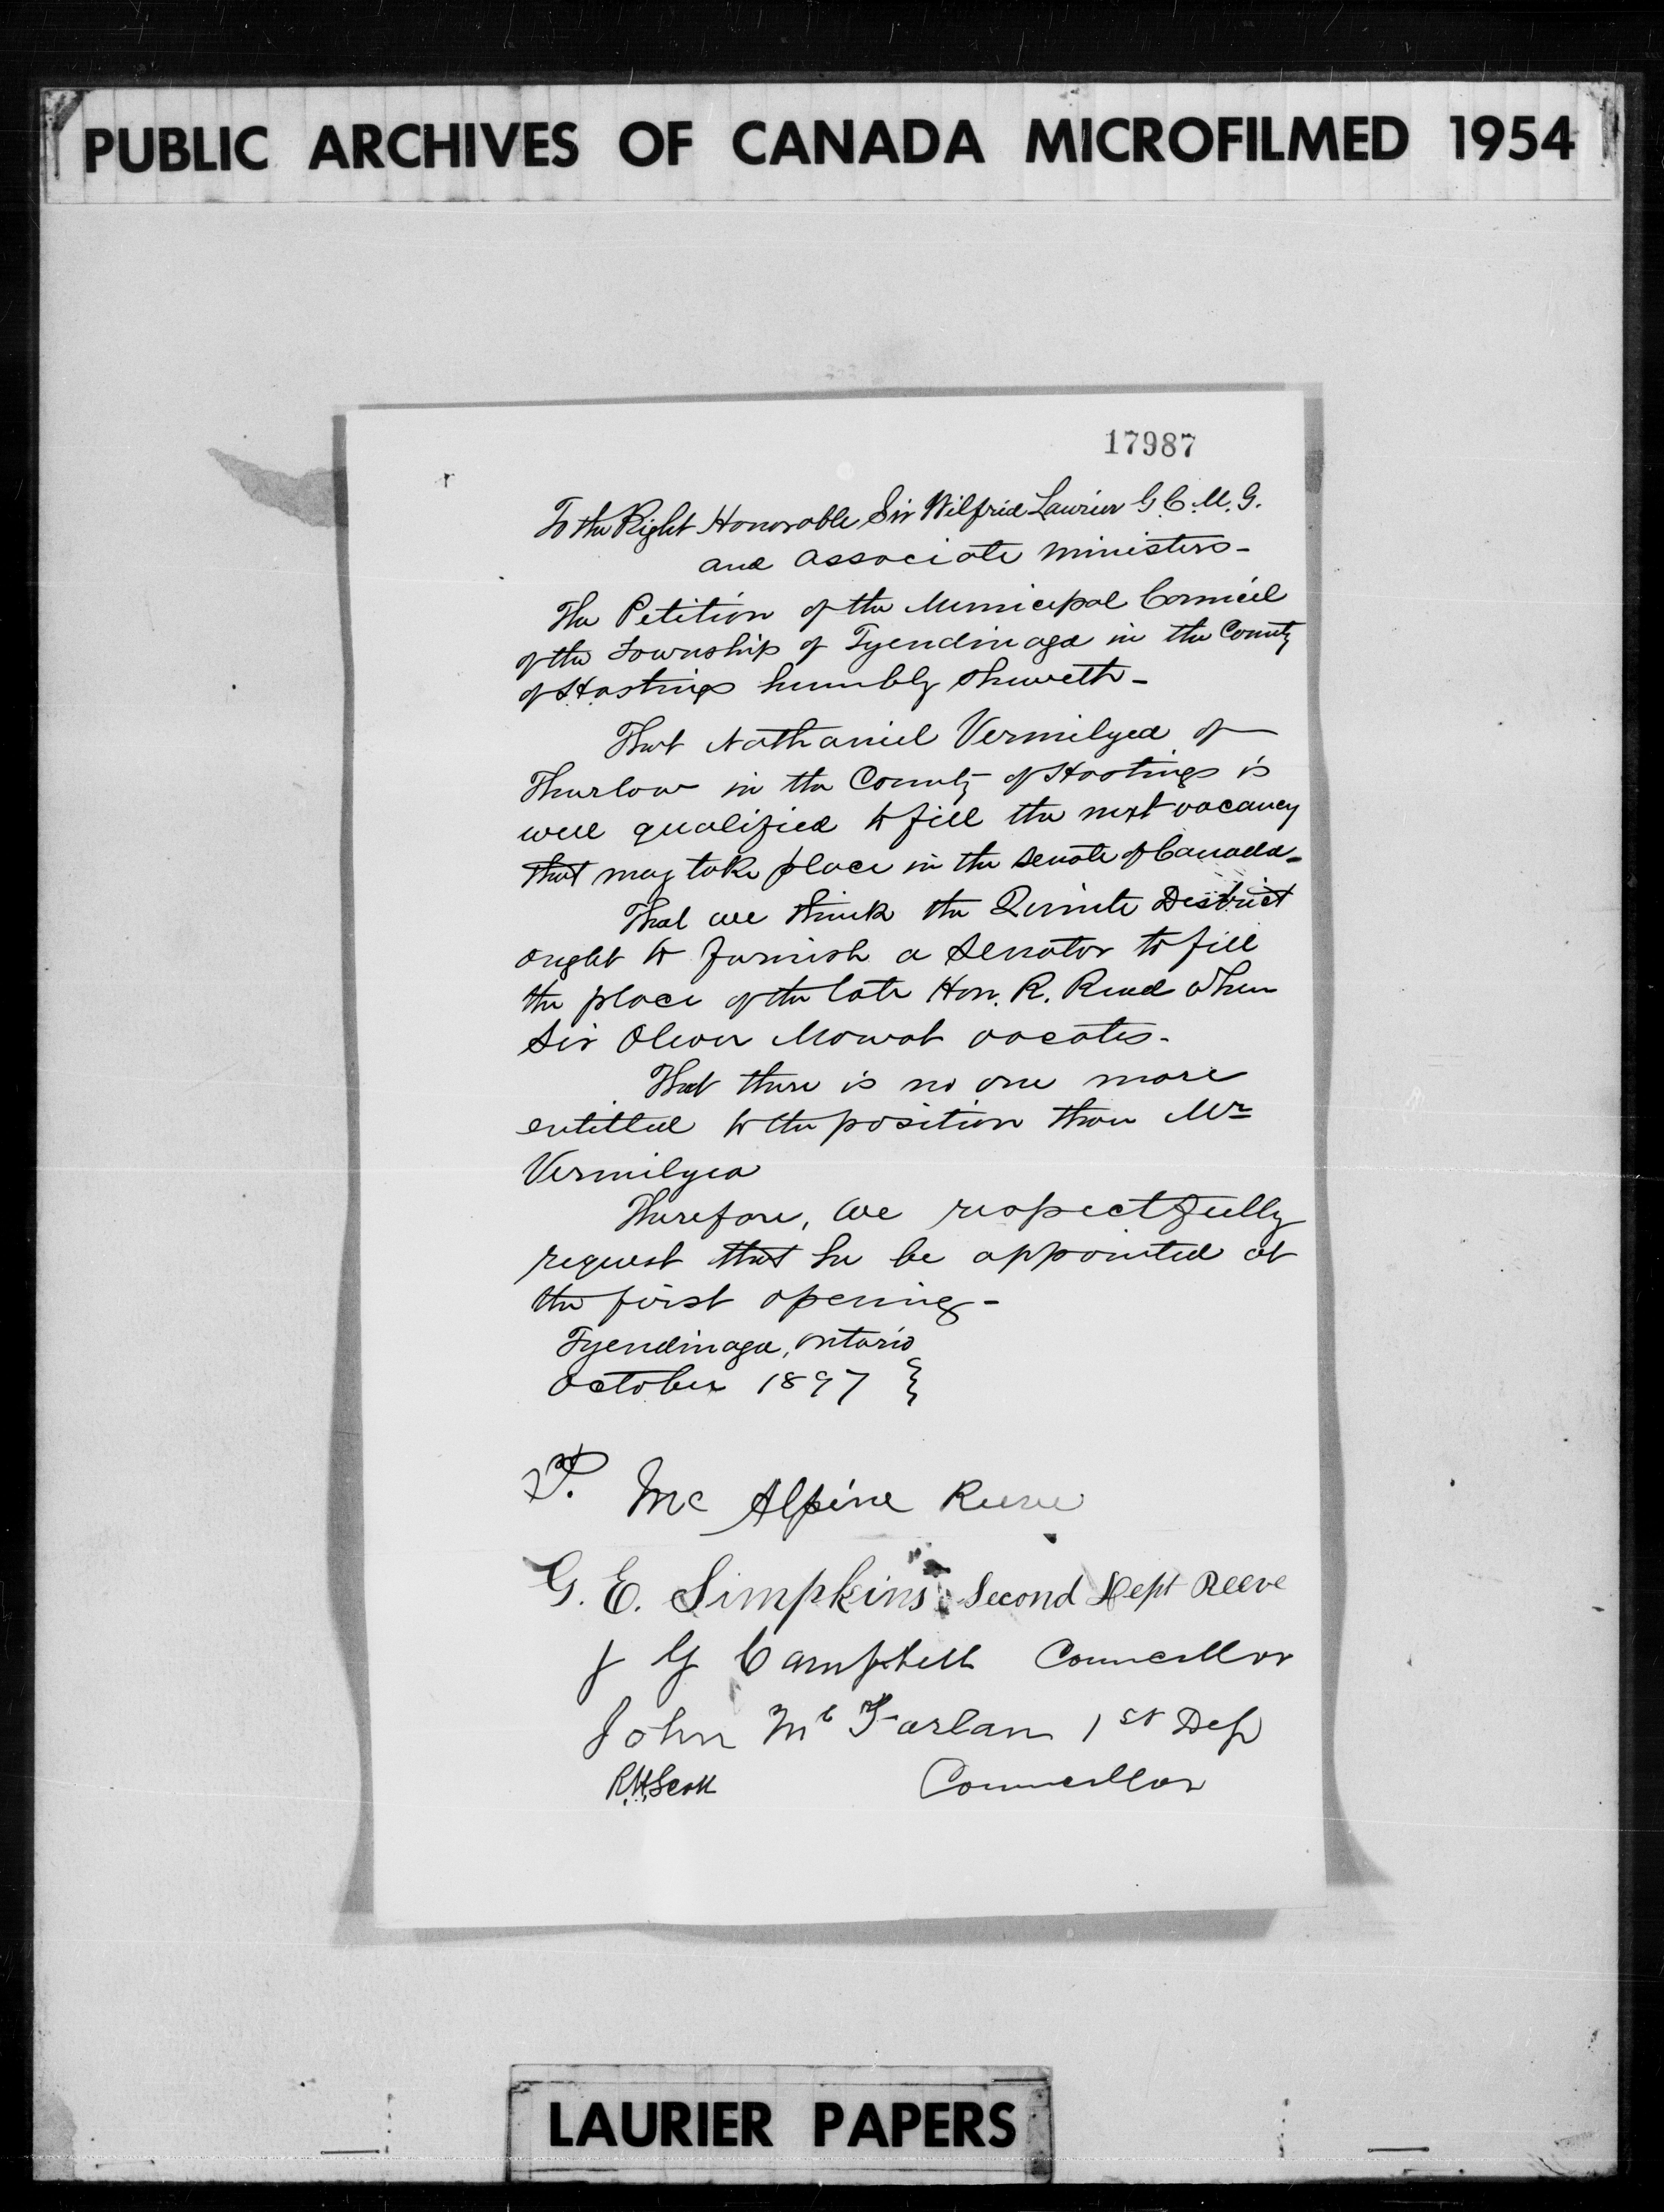 PUBLIC ARCHIVES OF CANADA MICROFILMED 1954
17987
To the Right Honorable Sir Wilfrid Laurier G.C.M.G.
and associate ministers-
The Petition of the Municipal Council
of the Township of Tyendinaga in the County
of Hastings humbly sheweth-
That Nathaniel Vermilyea of
Thurlow in the County of Hastings is
well qualified to fill the next vacancy
that may take place in the Senate of Canada-
That we think the Quinte District
ought to furnish a Senator to fill
the place of the late Hon. R. Read when
Sir Oliver Mowat vacates-
That there is no one more
entitled to the position than Mr
Vermilyea
Therefore, we respectfully
request that he be appointed at
the first opening-
Tyendinaga, Ontario
October 1897 }
Mc Alpine Reeve
G. E. Simpkins Second Dept Reeve
J G Campbell Councillor
John Mc Farlan 1st Dep
R.H. Scott Councillor
LAURIER PAPERS